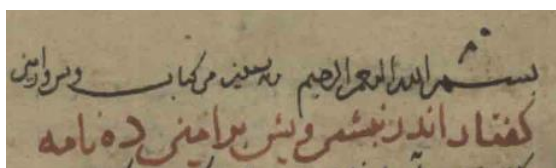 بسم الله الرحمن الرحیم وبه نستعین من کتاب ویس ورامین
گفتار اندر نبشتن ویس برامین ده نامه